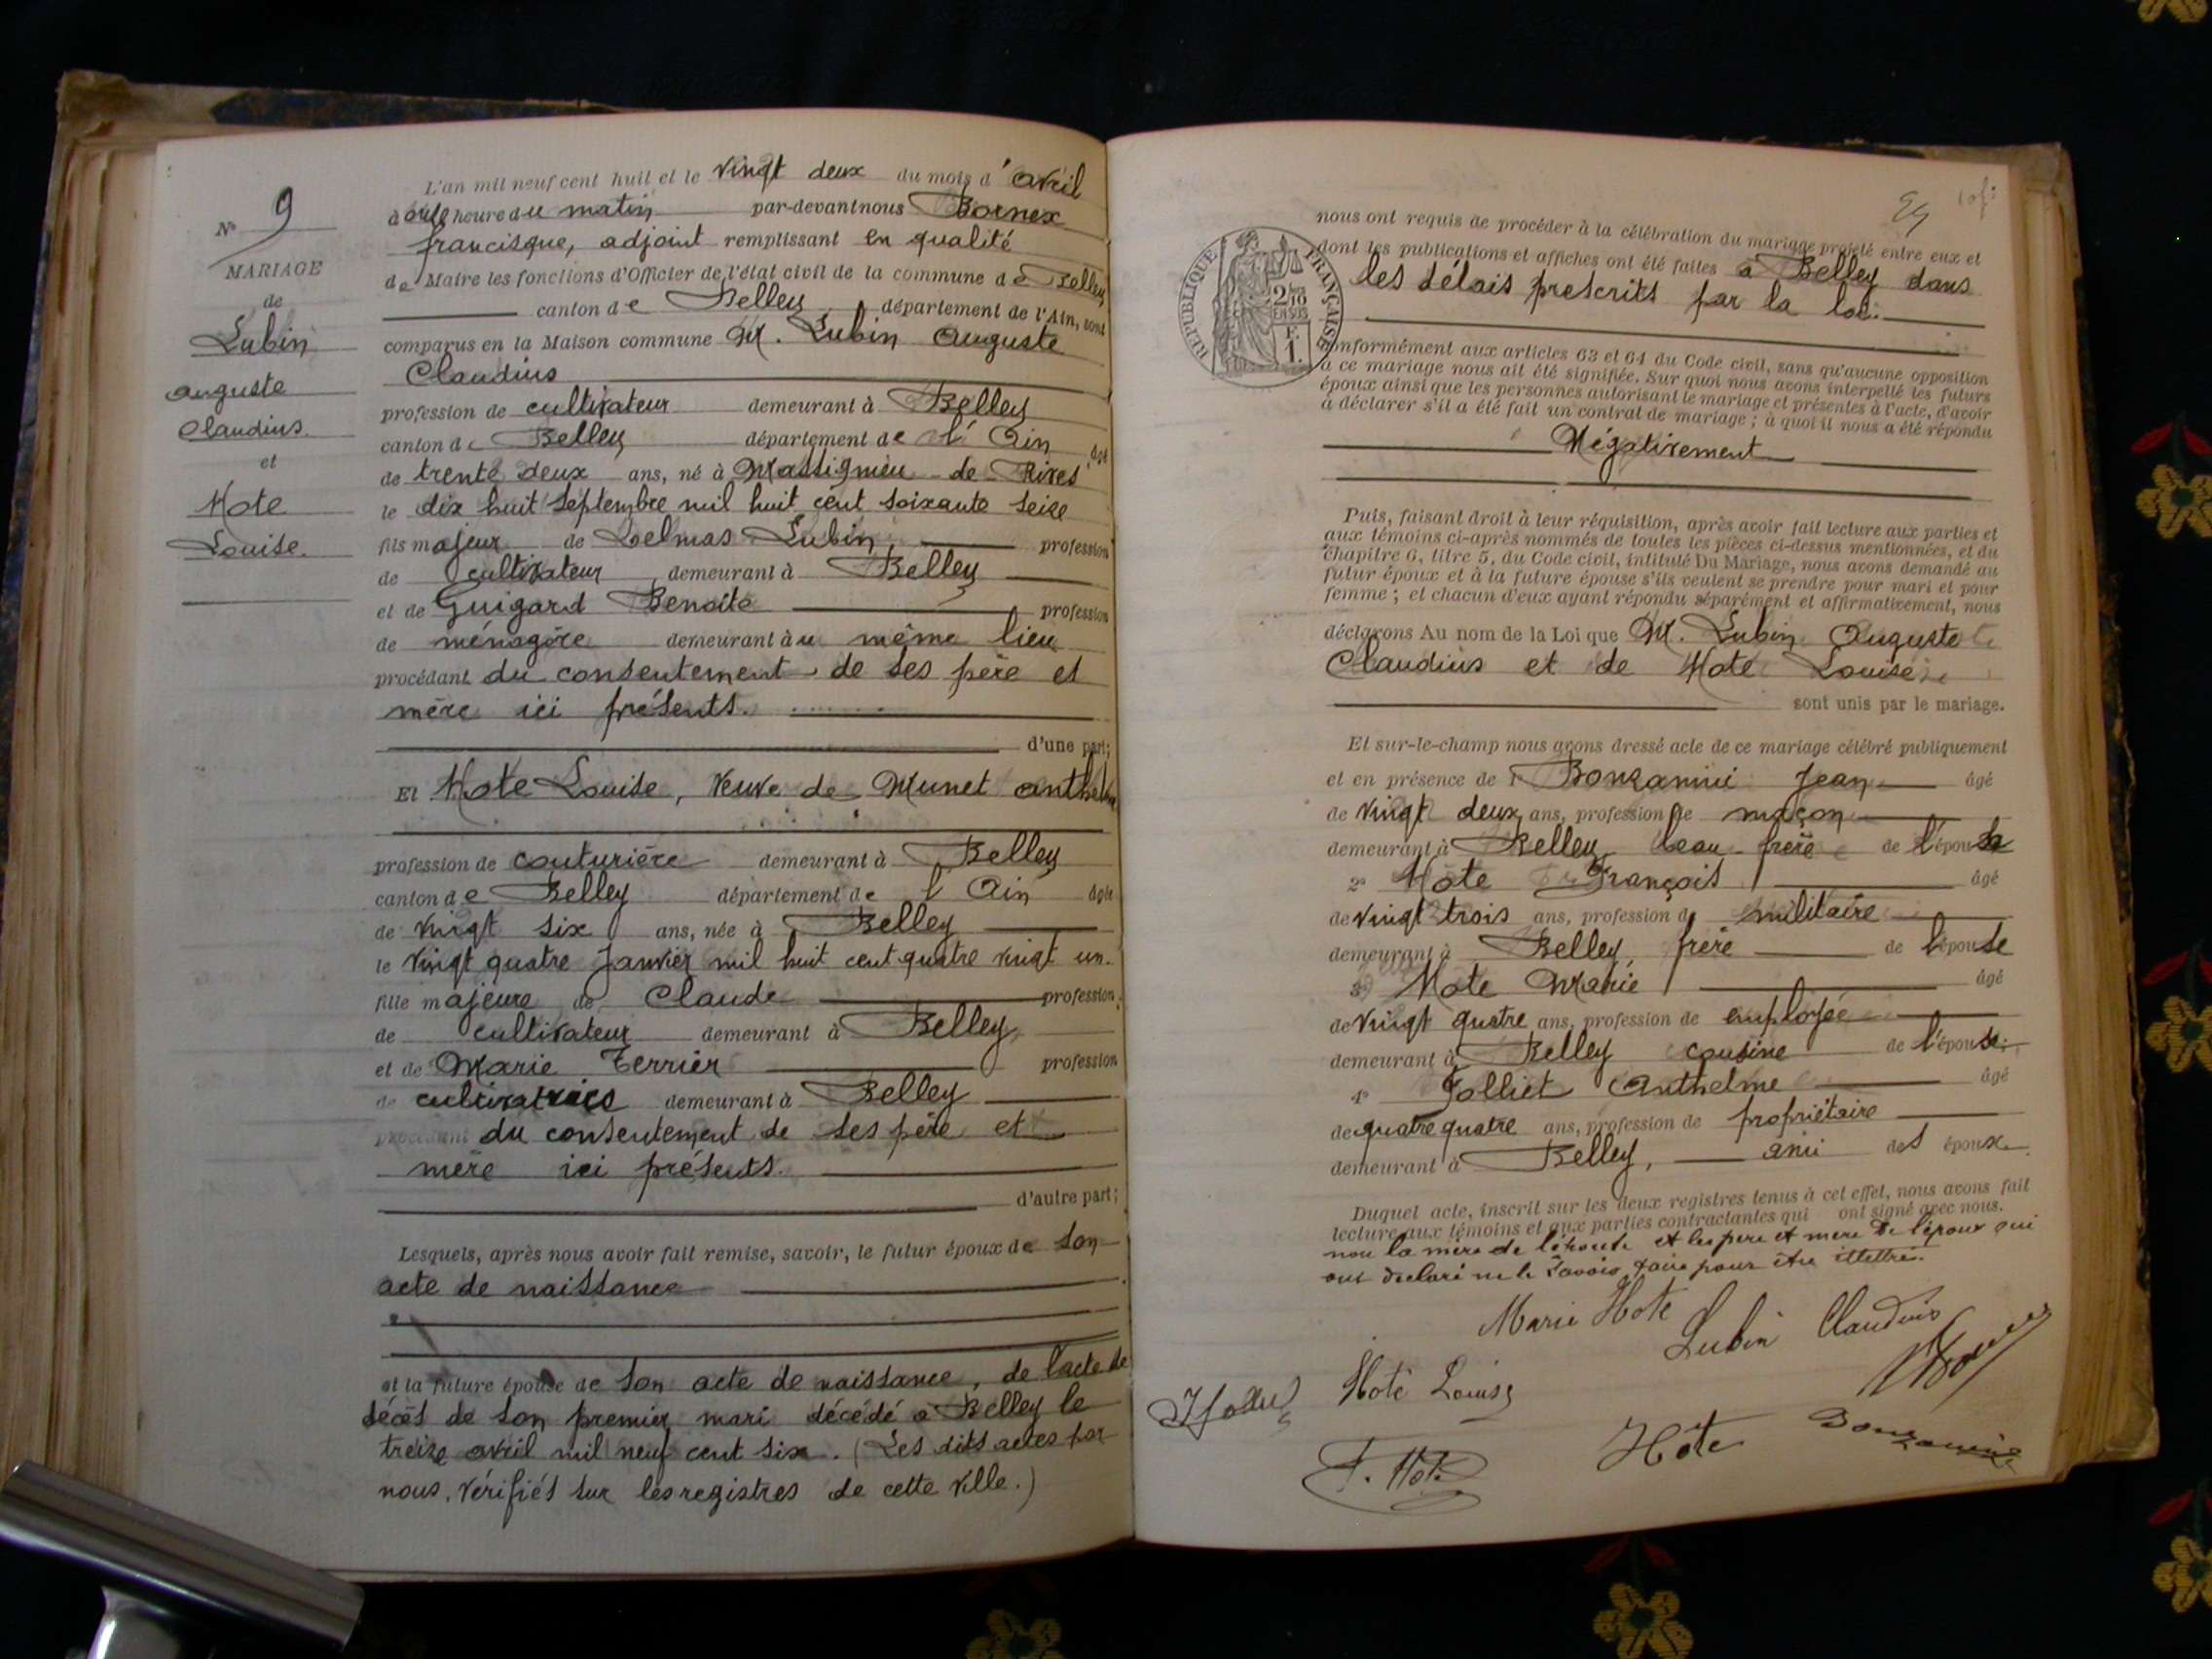 N° 9
MARIAGE
de
Lubin
auguste
Claudius.
et
Hote
Louise.
L'an mil neuf cent huit et le vingt deux du mois d'avril
à onze heure du matin par-devant nous Bornex
francisque, adjoint remplissant en qualité
de Maire les fonctions d'Officier de l'état civil de la commune de Belley
canton de Belley département de l'Ain, sont
comparus en la Maison commune M. Lubin Auguste
Claudius
profession de cultivateur demeurant à Belley
canton de Belley département de l'Ain âgé
de trente deux ans, né à Massignieu de Rives
le dix huit septembre mil huit cent soixante seize
fils majeur de Delmas Lubin profession
de cultivateur demeurant à Belley
et de Guigard Benoîte profession
de ménagère demeurant au même lieu
procédant du consentement de ses père et
mère ici présents.
d'une part;
Et Hote Louise, veuve de Munet anthelme
profession de couturière demeurant à Belley
canton de Belley département de l'Ain âgée
de vingt six ans, née à Belley
le vingt quatre Janvier mil huit cent quatre vingt un.
fille majeure de Claude profession
de cultivateur demeurant à Belley
et de Marie Terrier profession
de cultivatrice demeurant à Belley
procédant du consentement de ses père et
mère ici présents.
d'autre part;
Lesquels, après nous avoir fait remise, savoir, le futur époux de son
acte de naissance
et la future épouse de son acte de naissance, de l'acte de
décès de son premier mari décédé à Belley le
treize avril mil neuf cent six. (Les dits actes par
nous, vérifiés sur les registres de cette ville.)
RÉPUBLIQUE FRANÇAISE
2/10
EN SUS
F.
1.
nous ont requis de procéder à la célébration du mariage projeté entre eux et
dont les publications et affiches ont été faites à Belley dans
les délais prescrits par la loi.
conformément aux articles 63 et 64 du Code civil, sans qu'aucune opposition
à ce mariage nous ait été signifiée. Sur quoi nous avons interpellé les futurs
époux ainsi que les personnes autorisant le mariage et présentes à l'acte, d'avoir
à déclarer s'il a été fait un contrat de mariage ; à quoi il nous a été répondu
Négativement
Puis, faisant droit à leur réquisition, après avoir fait lecture aux parties et
aux témoins ci-après nommés de toutes les pièces ci-dessus mentionnées, et du
chapitre 6, titre 5, du Code civil, intitulé Du Mariage, nous avons demandé au
futur époux et à la future épouse s'ils veulent se prendre pour mari et pour
femme ; et chacun d'eux ayant répondu séparément et affirmativement, nous
déclarons Au nom de la Loi que M. Lubin Auguste
Claudius et de Hote Louise
sont unis par le mariage.
Et sur-le-champ nous avons dressé acte de ce mariage célébré publiquement
et en présence de 1° Bonzanini Jean âgé
de vingt deux ans, profession de maçon
demeurant à Belley beau frère de l'épouse
2° Hôte François âgé
de vingt trois ans, profession de militaire
demeurant à Belley, frère de l'épouse
3° Hote Marie âgé
de vingt quatre ans, profession de employée
demeurant à Belley cousine de l'épouse
4° Jolliet Anthelme âgé
de quatre quatre ans, profession de propriétaire
demeurant à Belley, ami des époux.
Duquel acte, inscrit sur les deux registres tenus à cet effet, nous avons fait
lecture aux témoins et aux parties contractantes qui ont signé avec nous.
non la mère de l'épouse et les père et mère de l'époux qui
ont déclaré ne le savoir faire pour être illettrés.
Marie Hote
Lubin Claudius
Hote Louise
F. Hote
Hôte
Bonzanini